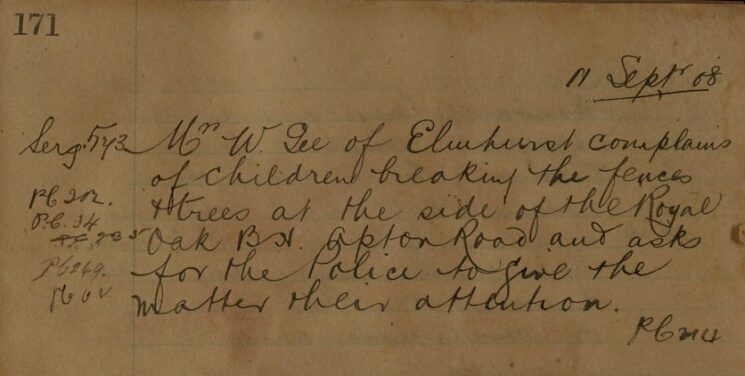 171
11 Septr 08
Serg. 573 Mrs W. Gee of Elmhurst complains
of children breaking the fences
PC 202.
& trees at the side of the Royal
P.C. 34
235 Oak B.H. Upton Road and asks
PC 269.
for the Police to give the
PC 62
matter their attention.
PC 214